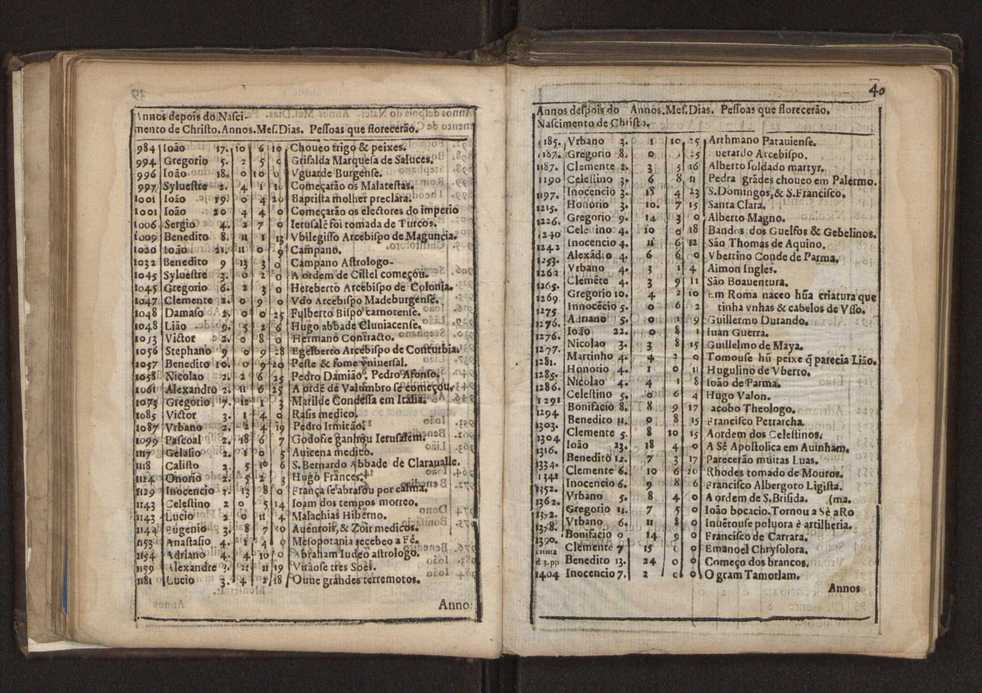 Annos depois do Nasci-
mento de Christo. Annos. Mes. Dias. Pessoas que florecerão.
984 Ioão 17. 10 6 10 Choueo trigo & peixes.
994 Gregorio 5. 2 5 0 Grisalda Marquesa de Saluces.
996 Ioão 18. 0 10 0 Vguarde Burgense.
997 Syluestre 2. 4 1 Começarão os Malatestas.
1001 Ioão 19. 0 4 20 Baptista molher preclara.
1001 Ioão 20 4 4 0 Começarão os electores do imperio
1006 Sergio 4. 2 7 0 Ierusalẽ foi tomada de Turcos.
1009 Benedito 8. 11 1 13 Vbilegisso Arcebispo de Maguncia.
1020 Ioão 21. 11 0 9 Campano.
1032 Benedito 9 13 3 0 Campano Astrologo.
1045 Syluestre 3. 0 2 0 A ordem de Cistel começou.
1045 Gregorio 6. 2 3 0 Hereberto Arcebispo de Colonia.
1047 Clemente 2. 0 9 0 Vdo Arcebispo Madeburgense.
1048 Damaso 2. 0 0 25 Fulberto Bispo carnotense.
1048 Lião 9. 5 2 6 Hugo abbade Cluniacense.
1053 Victor 2. 0 8 0 Hermano Contracto.
1056 Stephano 9 0 9 28 Egelberto Arcebispo de Conturbia.
1057 Benedito 10. 0 9 20 Peste & fome vniuersal.
1058 Nicolao 2. 2 6 25 Pedro Damião. Pedro Afonso.
1061 Alexandro 2. 11 6 25 A ordẽ de Valumbro se começou.
1073 Gregorio 7. 12 1 3 Matilde Condessa em Italia.
1085 Victor 3. 1 4 0 Rasis medico.
1087 Vrbano 2. 2 4 19 Pedro Irmitão.
1099 Pascoal 2. 18 6 7 Godofre ganhou Ierusalem.
1117 Gelasio 2. 1 0 5 Auicena medico.
1118 Calisto 2. 5 10 6 S. Bernardo Abbade de Clarauálle.
1124 Onorio 2. 5 2 3 Hugo Frances.
1129 Inocencio 2. 13 8 0 França se abrasou por calma.
1143 Celestino 2 0 5 14 Ioam dos tempos morreo.
1143 Lucio 2 0 11 4 Malachias Hiberno.
1144 Eugenio 3. 8 7 0 Auenrois, & Zoir medicos.
1153 Anastasio 4. 1 4 0 Mesopotania recebeo a Fé.
1154 Adriano 4. 4 10 0 Abraham Iudeo astrologo.
1159 Alexandre 3. 21 11 19 Virãose tres Soes.
1181 Lucio 3. 4 2 18 Ouue grãndes terremotos.
Anno
40
Annos despois do Annos. Mes. Dias. Pessoas que florecerão.
Nascimento de Christo.
1185. Vrbano 3. 1 10 25 Arthmano Patauiense.
1187. Gregorio 8. 0 1 25 uerardo Arcebispo.
1187. Clemente 2. 3 5 16 Alberto soldado martyr.
1190 Celestino 3. 6 8 11 Pedra grãdes choueo em Palermo.
1197. Inocencio 3. 18 4 23 S. Domingos, & S. Francisco.
1215. Honorio 3. 10. 7 15 Santa Clara.
1226. Gregorio 9. 14 3 0 Alberto Magno.
1240 Celestino 4. 10 0 18 Bandos dos Guelfos & Gebelinos.
1242 Inocencio 4. 11 6 12 São Thomas de Aquino.
1253. Alexãdio 4. 6 6 0 Vbertino Conde de Parma.
1262 Vrbano 4. 3 1 4 Aimon Ingles.
1265. Clemẽte 4. 3 9 11 São Boauentura.
1269. Gregorio 10. 4 2 10 Em Roma naceo hũa criatura que
1275 Innocẽcio 5. 0 6 2 tinha vnhas & cabelos de Vsso.
1276. Adriano 5. 0 1 9 Guillermo Durando.
1276. Ioão 22. 0 8 1 Iuan Guerra.
1277. Nicolao 3. 3 8 15 Guillelmo de Maya.
1281. Martinho 4. 4 2 0 Tomouse hũ peixe q̃ parecia Lião.
1285. Honorio 4. 1 0 11 Hugulino de Vberto.
1286. Nicolao 4. 4 1 8 Ioão de Parma.
1291 Celestino 5. 0 6 4 Hugo Valon.
1294 Bonifacio 8. 8 9 17 acobo Theologo.
1303. Benedito 11. 0 8 15 Francisco Petrarcha.
1304 Clemente 5. 8 10 15 A ordem dos Celestinos.
1316. Ioão 23. 18 4 0 A Sé Apostolica em Auinham.
1334. Benedito 12. 7 3 17 Parecerão muitas Luas.
1342 Clemente 6. 10 6 20 Rhodes tomado de Mouros.
1352. Inocencio 6. 9 8 6 Francisco Albergoto Ligista.
1362. Vrbano 5. 8 4 0 A ordem de S. Brisida. (ma.
1372. Gregorio 11. 7 5 0 Ioão bocacio. Tornou a Sè a Ro
1378. Vrbano 6. 11 8 0 Inuẽtouse poluora é artilheria.
1390. Bonifacio 0 14 9 0 Francisco de Carrara.
Clemente 7 15 0 Emanoel Chrysolora.
Benedito 13. 24 0 0 Começo dos brancos.
1404 Inocencio 7. 2 0 0 O gram Tamorlam.
Annos